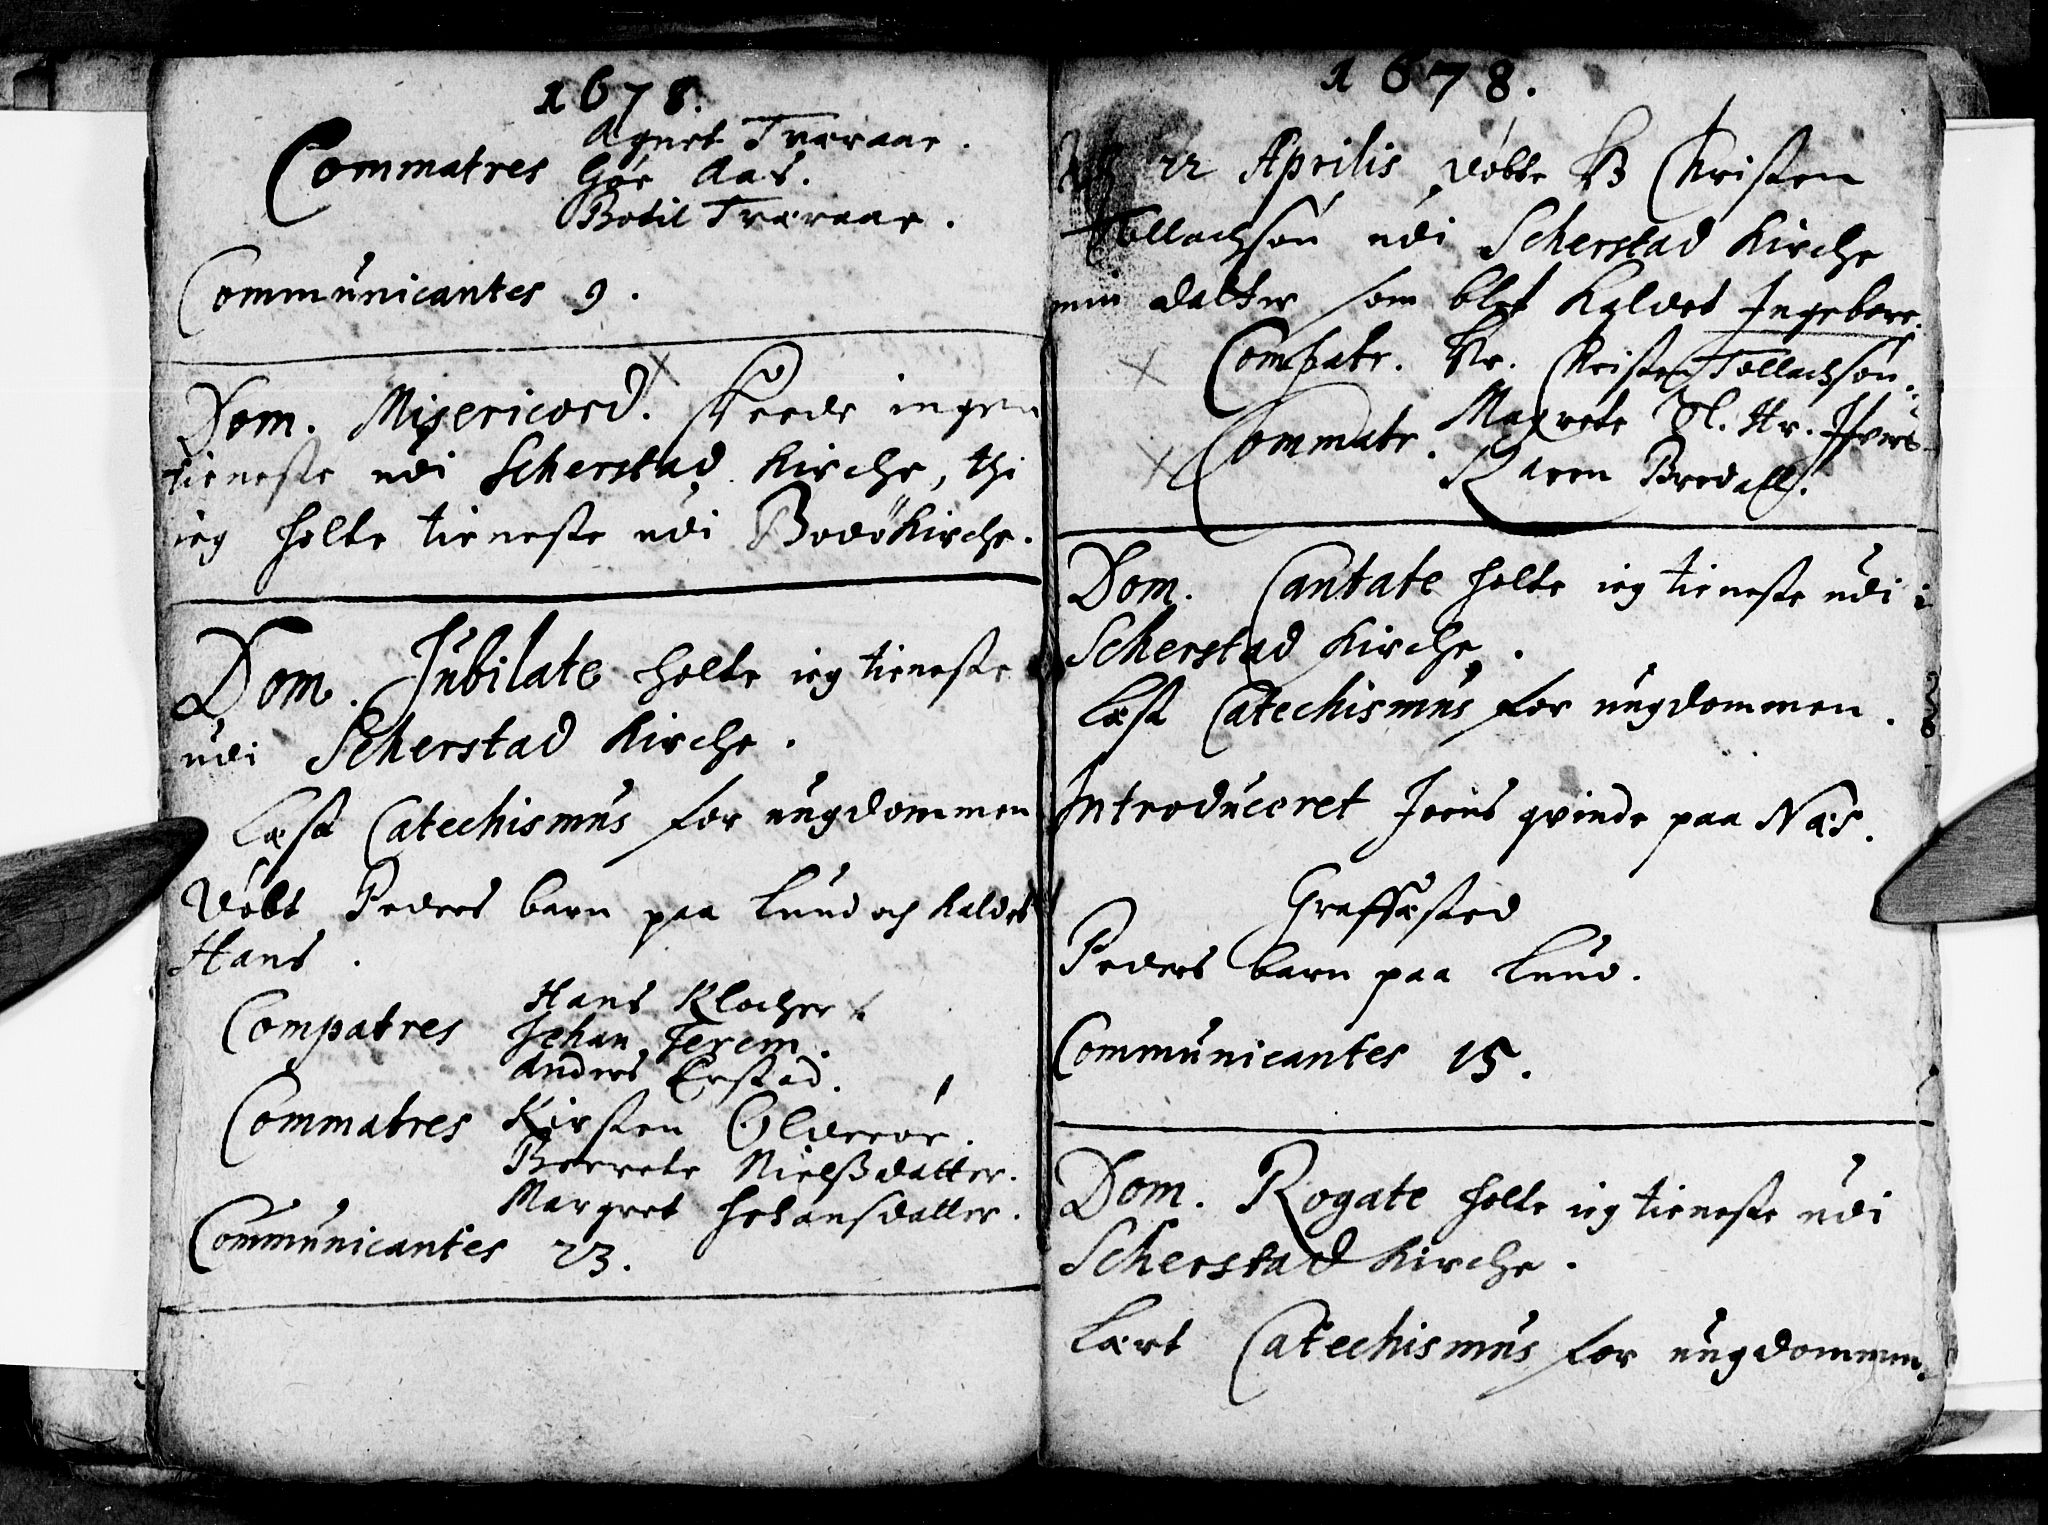 1678.
Agnet Tværaae.
Commatres Gør Aas.
Bodil Tværaae.
Communicantes 9.
Dom. Misericord. skeede ingen
tieneste udi Scherstad Kirche, thi
ieg holte tieneste udi Bodö Kirche.
Dom. Jubilate holte ieg tieneste
udi Scherstad Kirche.
Læst Catechismus for ungdommen
Döbt Peders barn paa Lund och kaldet
Hans.
Hans Klocher
Compatres Johan
Anders Erstad.
Commatres Kirsten Olderöe.
Berrete Nielßdatter.
Margret Johansdatter.
Communicantes 23.
1678.
22 Aprilis döbte Hr Christen
Tollachsön udi Scherstad Kirche
min datter som blef kaldet Ingebore.
Compatr. Hr. Christen Tollachsön.
Commatr. Magrete Sl. Hr. Ifvers
Karen Bredall.
Dom. Cantate holte ieg tieneste udi
Scherstad Kirche.
Læst Catechismus for ungdommen.
Introduceret Joens qvinde paa Næs.
Graffæsted
Peders barn paa Lund.
Communicantes 15.
Dom. Rogate holte ieg tieneste udi
Scherstad Kirche.
Lært Catechismus for ungdommen.